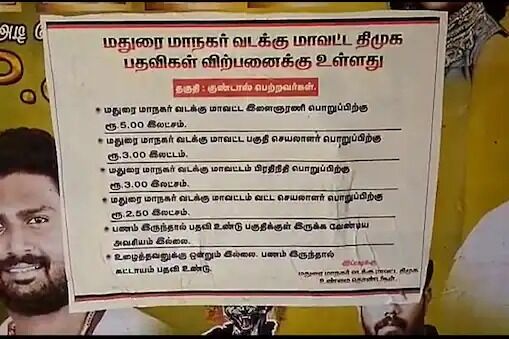 மதுரை மாநகர் வடக்கு மாவட்ட திமுக
பதவிகள் விற்பனைக்கு உள்ளது
தகுதி : குண்டாஸ் பெற்றவர்கள்.
மதுரை மாநகர் வடக்கு மாவட்ட இளைஞரணி பொறுப்பிற்கு
ரூ.5.00 இலட்சம்.
மதுரை மாநகர் வடக்கு மாவட்ட பகுதி செயலாளர் பொறுப்பிற்கு
ரூ.3.00 இலட்டம்.
மதுரை மாநகர் வடக்கு மாவட்டம் பிரதிநிதி பொறுப்பிற்கு
ரூ.3.00 இலட்சம்.
மதுரை மாநகர் வடக்கு மாவட்டம் வட்ட செயலாளர் பொறுப்பிற்கு
ரூ.2.50 இலட்சம்.
பணம் இருந்தால் பதவி உண்டு பகுதிக்குள் இருக்க வேண்டிய
அவசியம் இல்லை.
உழைத்தவனுக்கு ஒன்றும் இல்லை. பணம் இருந்தால்
கட்டாயம் பதவி உண்டு.
இப்படிக்கு
மதுரை மாநகர் வடக்கு மாவட்ட திமுக
உண்மை தொண்டர்கள்.